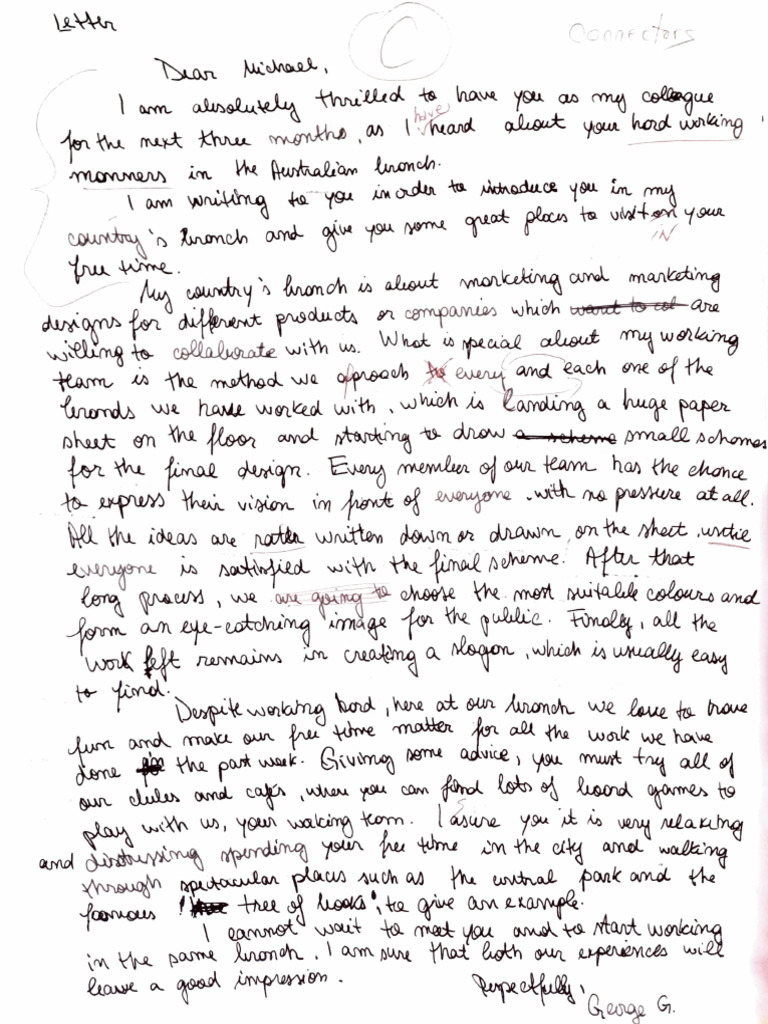 Letter
C
Connectors
Dear Michael,
I am absolutely thrilled to have you as my collegue
have
for the next three months, as I heard about your hard working
manners in the Australian branch.
I am writing to you in order to introduce you in my
country's branch and give you some great places to visit on your
in
free time.
My country's branch is about marketing and marketing
designs for different products or companies which want to col are
willing to collaborate with us. What is special about my working
team is the method we aproach to every and each one of the
brands we have worked with, which is landing a huge paper
sheet on the floor and starting to draw a scheme small schemes
for the final design. Every member of our team has the chance
to express their vision in front of everyone, with no pressure at all.
All the ideas are written down or drawn, on the sheet,
everyone is satisfied with the final scheme. After that
long process, we are going to choose the most suitable colours and
form an eye-catching image for the public. Finally, all the
work left remains in creating a slogan, which is usually easy
to find.
Despite working hard, here at our branch we love to have
fun and make our free time matter for all the work we have
done the past week. Giving some advice, you must try all of
our clubs and cafes, where you can find lots of board games to
play with us, your working team. I asure you it is very relaxing
and spending your free time in the city and walking
through spectacular places such as the central park and the
famous "tree of books", to give an example.
I cannot wait to meet you and to start working
in the same branch. I am sure that both our experiences will
leave a good impression.
Respectfully,
George G.